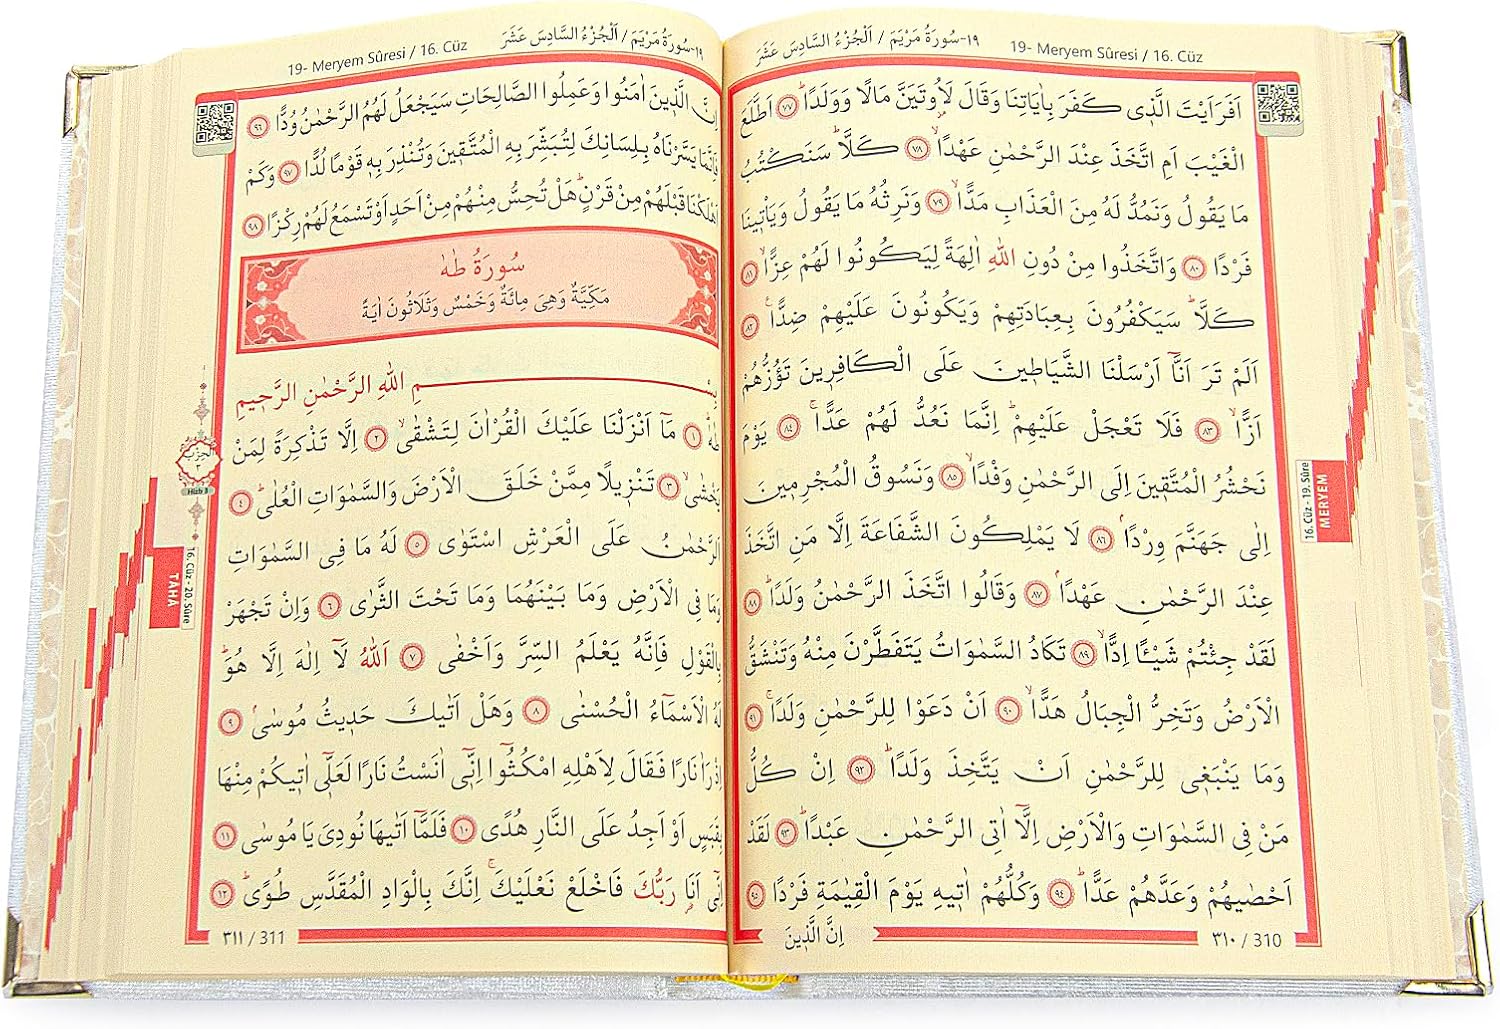 19- Meryem Sûresi / 16. Cüz
١٩-سُورَةُ مَرْيَمَ / اَلْجُزْءُ السَّادِسَ عَشَرَ
اَفَرَاَيْتَ الَّذٖي كَفَرَ بِاٰيَاتِنَا وَقَالَ لَاُو۫تَيَنَّ مَالًا وَوَلَدًاۜ ٧٧ اَطَّلَعَ
الْغَيْبَ اَمِ اتَّخَذَ عِنْدَ الرَّحْمٰنِ عَهْدًاۙ ٧٨ كَلَّاۜ سَنَكْتُبُ
مَا يَقُولُ وَنَمُدُّ لَهُ مِنَ الْعَذَابِ مَدًّاۙ ٧٩ وَنَرِثُهُ مَا يَقُولُ وَيَأْتٖينَا
فَرْدًا ٨٠ وَاتَّخَذُوا مِنْ دُونِ اللّٰهِ اٰلِهَةً لِيَكُونُوا لَهُمْ عِزًّاۙ ٨١
كَلَّاۜ سَيَكْفُرُونَ بِعِبَادَتِهِمْ وَيَكُونُونَ عَلَيْهِمْ ضِدًّا۟ ٨٢
اَلَمْ تَرَ اَنَّٓا اَرْسَلْنَا الشَّيَاطٖينَ عَلَى الْكَافِرٖينَ تَؤُزُّهُمْ
اَزًّاۙ ٨٣ فَلَا تَعْجَلْ عَلَيْهِمْۜ اِنَّمَا نَعُدُّ لَهُمْ عَدًّاۚ ٨٤ يَوْمَ
نَحْشُرُ الْمُتَّقٖينَ اِلَى الرَّحْمٰنِ وَفْدًاۙ ٨٥ وَنَسُوقُ الْمُجْرِمٖينَ
اِلٰى جَهَنَّمَ وِرْدًاۢ ٨٦ لَا يَمْلِكُونَ الشَّفَاعَةَ اِلَّا مَنِ اتَّخَذَ
عِنْدَ الرَّحْمٰنِ عَهْدًاۢ ٨٧ وَقَالُوا اتَّخَذَ الرَّحْمٰنُ وَلَدًاۜ ٨٨
لَقَدْ جِئْتُمْ شَيْـًٔا اِدًّاۙ ٨٩ تَكَادُ السَّمٰوَاتُ يَتَفَطَّرْنَ مِنْهُ وَتَنْشَقُّ
الْاَرْضُ وَتَخِرُّ الْجِبَالُ هَدًّاۙ ٩٠ اَنْ دَعَوْا لِلرَّحْمٰنِ وَلَدًاۚ ٩١
وَمَا يَنْبَغٖي لِلرَّحْمٰنِ اَنْ يَتَّخِذَ وَلَدًاۜ ٩٢ اِنْ كُلُّ
مَنْ فِي السَّمٰوَاتِ وَالْاَرْضِ اِلَّٓا اٰتِي الرَّحْمٰنِ عَبْدًاۜ ٩٣ لَقَدْ
اَحْصٰيهُمْ وَعَدَّهُمْ عَدًّاۜ ٩٤ وَكُلُّهُمْ اٰتٖيهِ يَوْمَ الْقِيٰمَةِ فَرْدًا ٩٥
اِنَّ الَّذٖينَ
٣١٠ / 310
16. Cüz - 19. Sûre
MERYEM
19- Meryem Sûresi / 16. Cüz
١٩-سُورَةُ مَرْيَمَ / اَلْجُزْءُ السَّادِسَ عَشَرَ
اِنَّ الَّذٖينَ اٰمَنُوا وَعَمِلُوا الصَّالِحَاتِ سَيَجْعَلُ لَهُمُ الرَّحْمٰنُ وُدًّا ٩٦
فَاِنَّمَا يَسَّرْنَاهُ بِلِسَانِكَ لِتُبَشِّرَ بِهِ الْمُتَّقٖينَ وَتُنْذِرَ بِهٖ قَوْمًا لُدًّا ٩٧ وَكَمْ
اَهْلَكْنَا قَبْلَهُمْ مِنْ قَرْنٍۜ هَلْ تُحِسُّ مِنْهُمْ مِنْ اَحَدٍ اَوْ تَسْمَعُ لَهُمْ رِكْزًا ٩٨
سُورَةُ طٰهٰ
مَكِّيَّةٌ وَهِيَ مِائَةٌ وَخَمْسٌ وَثَلَاثُونَ اٰيَةً
بِسْمِ اللّٰهِ الرَّحْمٰنِ الرَّحٖيمِ
طٰهٰۜ ١ مَٓا اَنْزَلْنَا عَلَيْكَ الْقُرْاٰنَ لِتَشْقٰىۙ ٢ اِلَّا تَذْكِرَةً لِمَنْ
يَخْشٰىۙ ٣ تَنْزٖيلًا مِمَّنْ خَلَقَ الْاَرْضَ وَالسَّمٰوَاتِ الْعُلٰىۜ ٤
اَلرَّحْمٰنُ عَلَى الْعَرْشِ اسْتَوٰى ٥ لَهُ مَا فِي السَّمٰوَاتِ
وَمَا فِي الْاَرْضِ وَمَا بَيْنَهُمَا وَمَا تَحْتَ الثَّرٰى ٦ وَاِنْ تَجْهَرْ
بِالْقَوْلِ فَاِنَّهُ يَعْلَمُ السِّرَّ وَاَخْفٰى ٧ اَللّٰهُ لَٓا اِلٰهَ اِلَّا هُوَۜ
لَهُ الْاَسْمَٓاءُ الْحُسْنٰى ٨ وَهَلْ اَتٰيكَ حَدٖيثُ مُوسٰىۢ ٩
اِذْ رَاٰ نَارًا فَقَالَ لِاَهْلِهِ امْكُثُٓوا اِنّٖٓي اٰنَسْتُ نَارًا لَعَلّٖٓي اٰتٖيكُمْ مِنْهَا
بِقَبَسٍ اَوْ اَجِدُ عَلَى النَّارِ هُدًى ١٠ فَلَمَّٓا اَتٰيهَا نُودِيَ يَا مُوسٰى ١١
اِنّٖٓي اَنَا۬ رَبُّكَ فَاخْلَعْ نَعْلَيْكَۚ اِنَّكَ بِالْوَادِ الْمُقَدَّسِ طُوًىۜ ١٢
٣١١ / 311
اَلْحِزْبُ
٣
Hizb 3
16. Cüz - 20. Sûre
TAHA